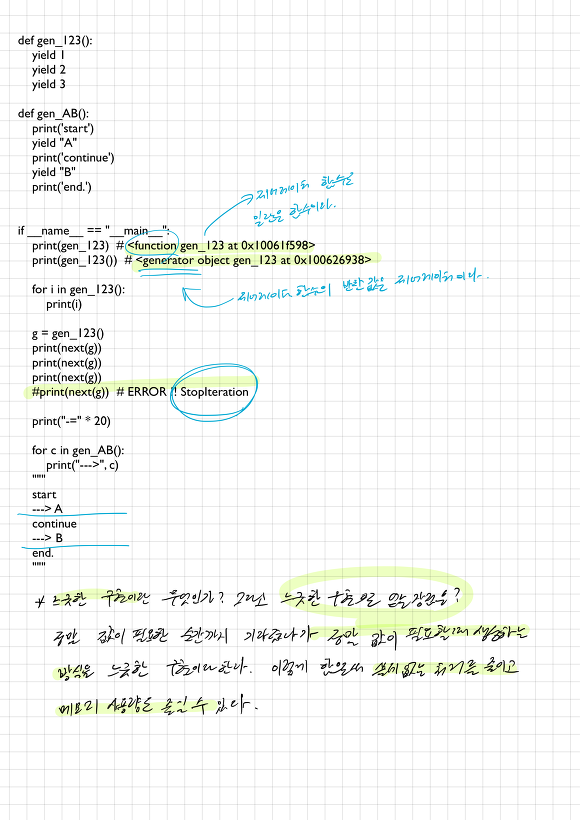 def gen_123():
yield 1
yield 2
yield 3
def gen_AB():
print('start')
yield "A"
print('continue')
yield "B"
print('end.')
제너레이터 함수는
일반은 함수이다.
if __name__ == "__main__":
print(gen_123) # <function gen_123 at 0x10061f598>
print(gen_123()) # <generator object gen_123 at 0x100626938>
제너레이터 함수의 반환 값은 제너레이터이다.
for i in gen_123():
print(i)
g = gen_123()
print(next(g))
print(next(g))
print(next(g))
#print(next(g)) # ERROR !! StopIteration
print("-=" * 20)
for c in gen_AB():
print("--->", c)
"""
start
---> A
continue
---> B
end.
"""
* 느긋한 구현이란 무엇인가? 그리고 느긋한 구현으로 얻는 장점은?
정말 값이 필요한 순간까지 기다렸다가 정말 값이 필요할 때 생성하는
방식을 느긋한 구현이라 한다. 이렇게 함으로써 쓸데없는 처리를 줄이고
메모리 사용량도 줄일 수 있다.